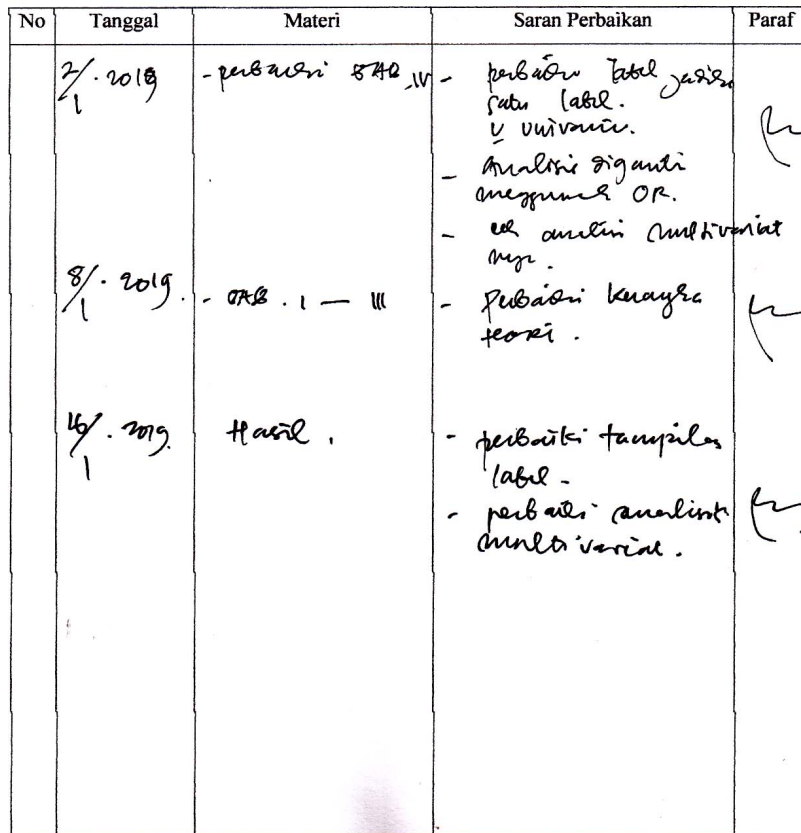 No Tanggal Materi Saran Perbaikan Paraf
2/1 . 2019 - perbaiki BAB IV - perbaiki tabel jadikan
satu tabel.
univariat.
- Analisis diganti
menggunakan OR.
- analisis multivariat
nya.
8/1 . 2019. - BAB . I — III - Perbaiki Kerangka
teori .
16/1 . 2019. Hasil . - perbaiki tampilan
tabel -
- perbaiki analisis
multivariat .